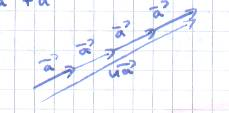 a⃗
a⃗
a⃗
a⃗
4a⃗